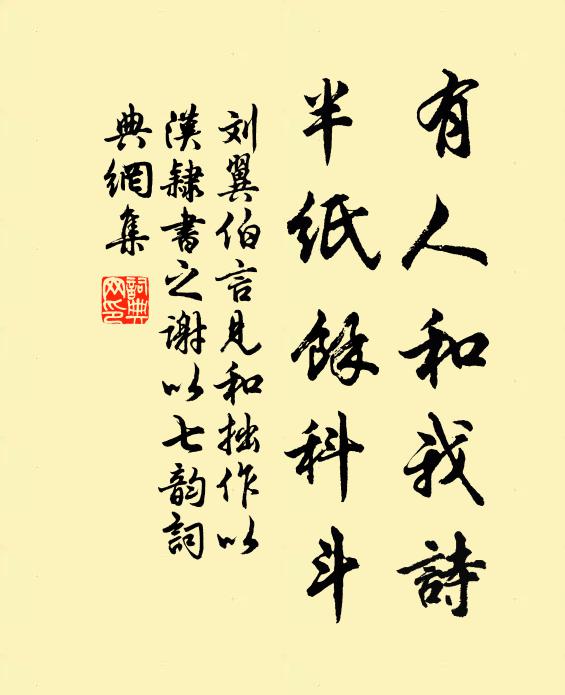 有人和我詩
半紙餘科斗
刘翼伯言見和拙作以
漢隸書之謝以七韵詞
典網集
詞典網印